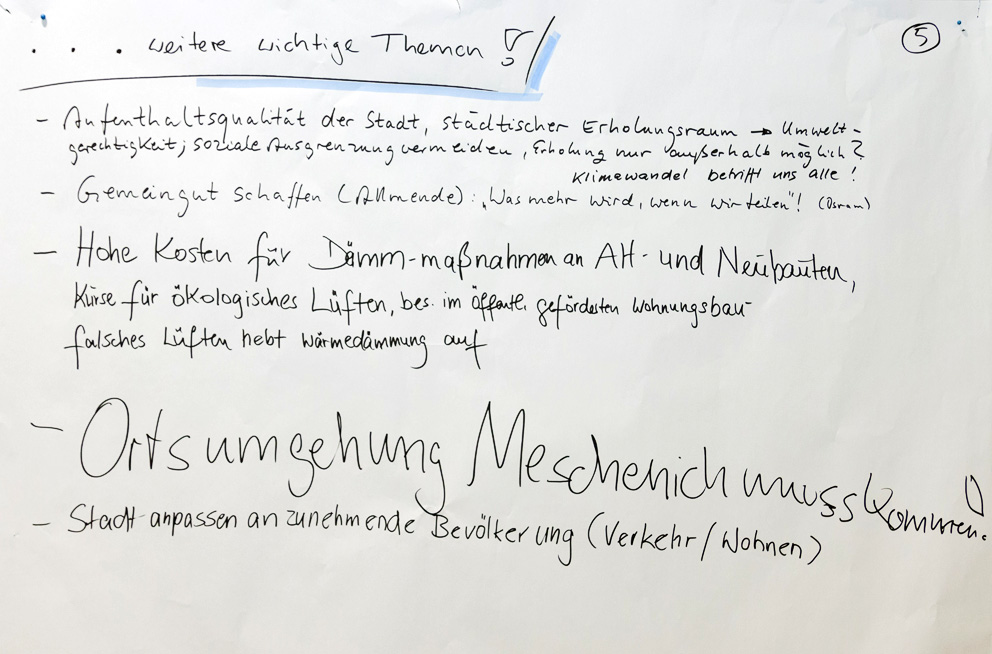 . . . weitere wichtige Themen ?!
5
- Aufenthaltsqualität der Stadt, städtischer Erholungsraum → Umwelt-
gerechtigkeit; soziale Ausgrenzung vermeiden, Erholung nur außerhalb möglich?
Klimewandel betrifft uns alle!
- Gemeingut schaffen (Allmende): "Was mehr wird, wenn wir teilen"! (Osram)
- Hohe Kosten für Dämm-maßnahmen an Alt- und Neubauten,
Kurse für ökologisches Lüften, bes. im öffentl. geförderten Wohnungsbau -
falsches Lüften hebt Wärmedämmung auf
- Ortsumgehung Meschenich muss kommen!
- Stadt anpassen an zunehmende Bevölkerung (Verkehr/Wohnen)